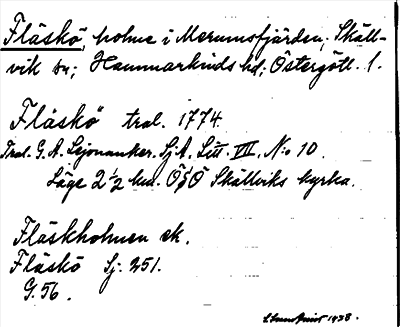 Fläskö, holme i Merumsfjärden, Skäll-
vik sn; Hammarkinds hd; Östergötl. l.
Fläskö tral. 1774.
Tral. G. A. Lejonanker. Sj A. Litt. VII. No 10.
Läge 2 1/2 km. ÖSÖ Skällviks kyrka.
Fläskholmen ek.
Fläskö Sj. 251.
G. 56.
1938.